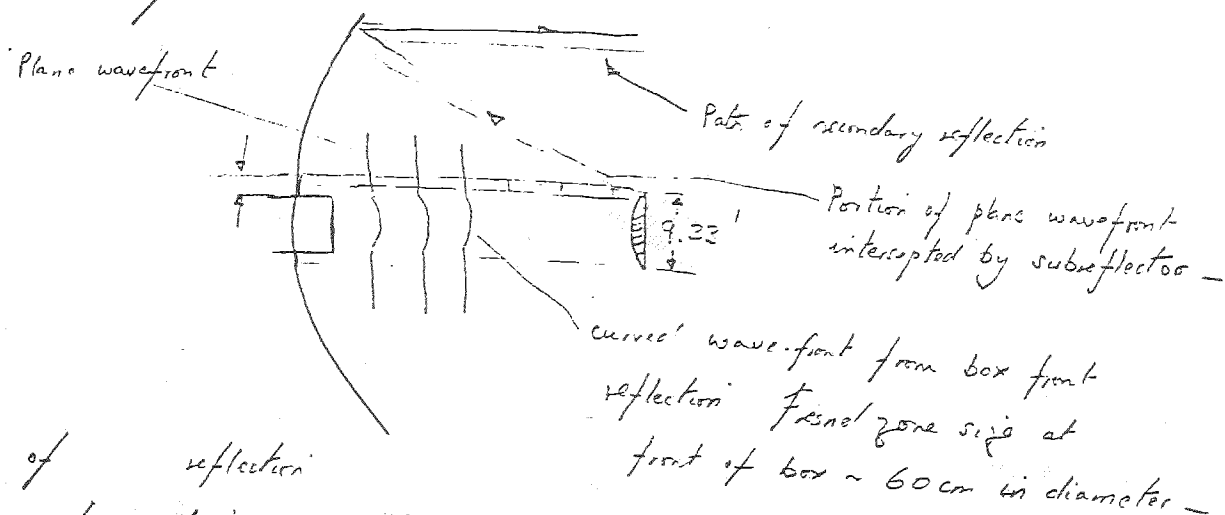 Plane wavefront
Path of secondary reflection
Portion of plane wavefront
intercepted by subreflector –
9.33'
curved wave-front from box front
reflection Fresnel zone size at
front of box ~ 60 cm in diameter –
of reflection